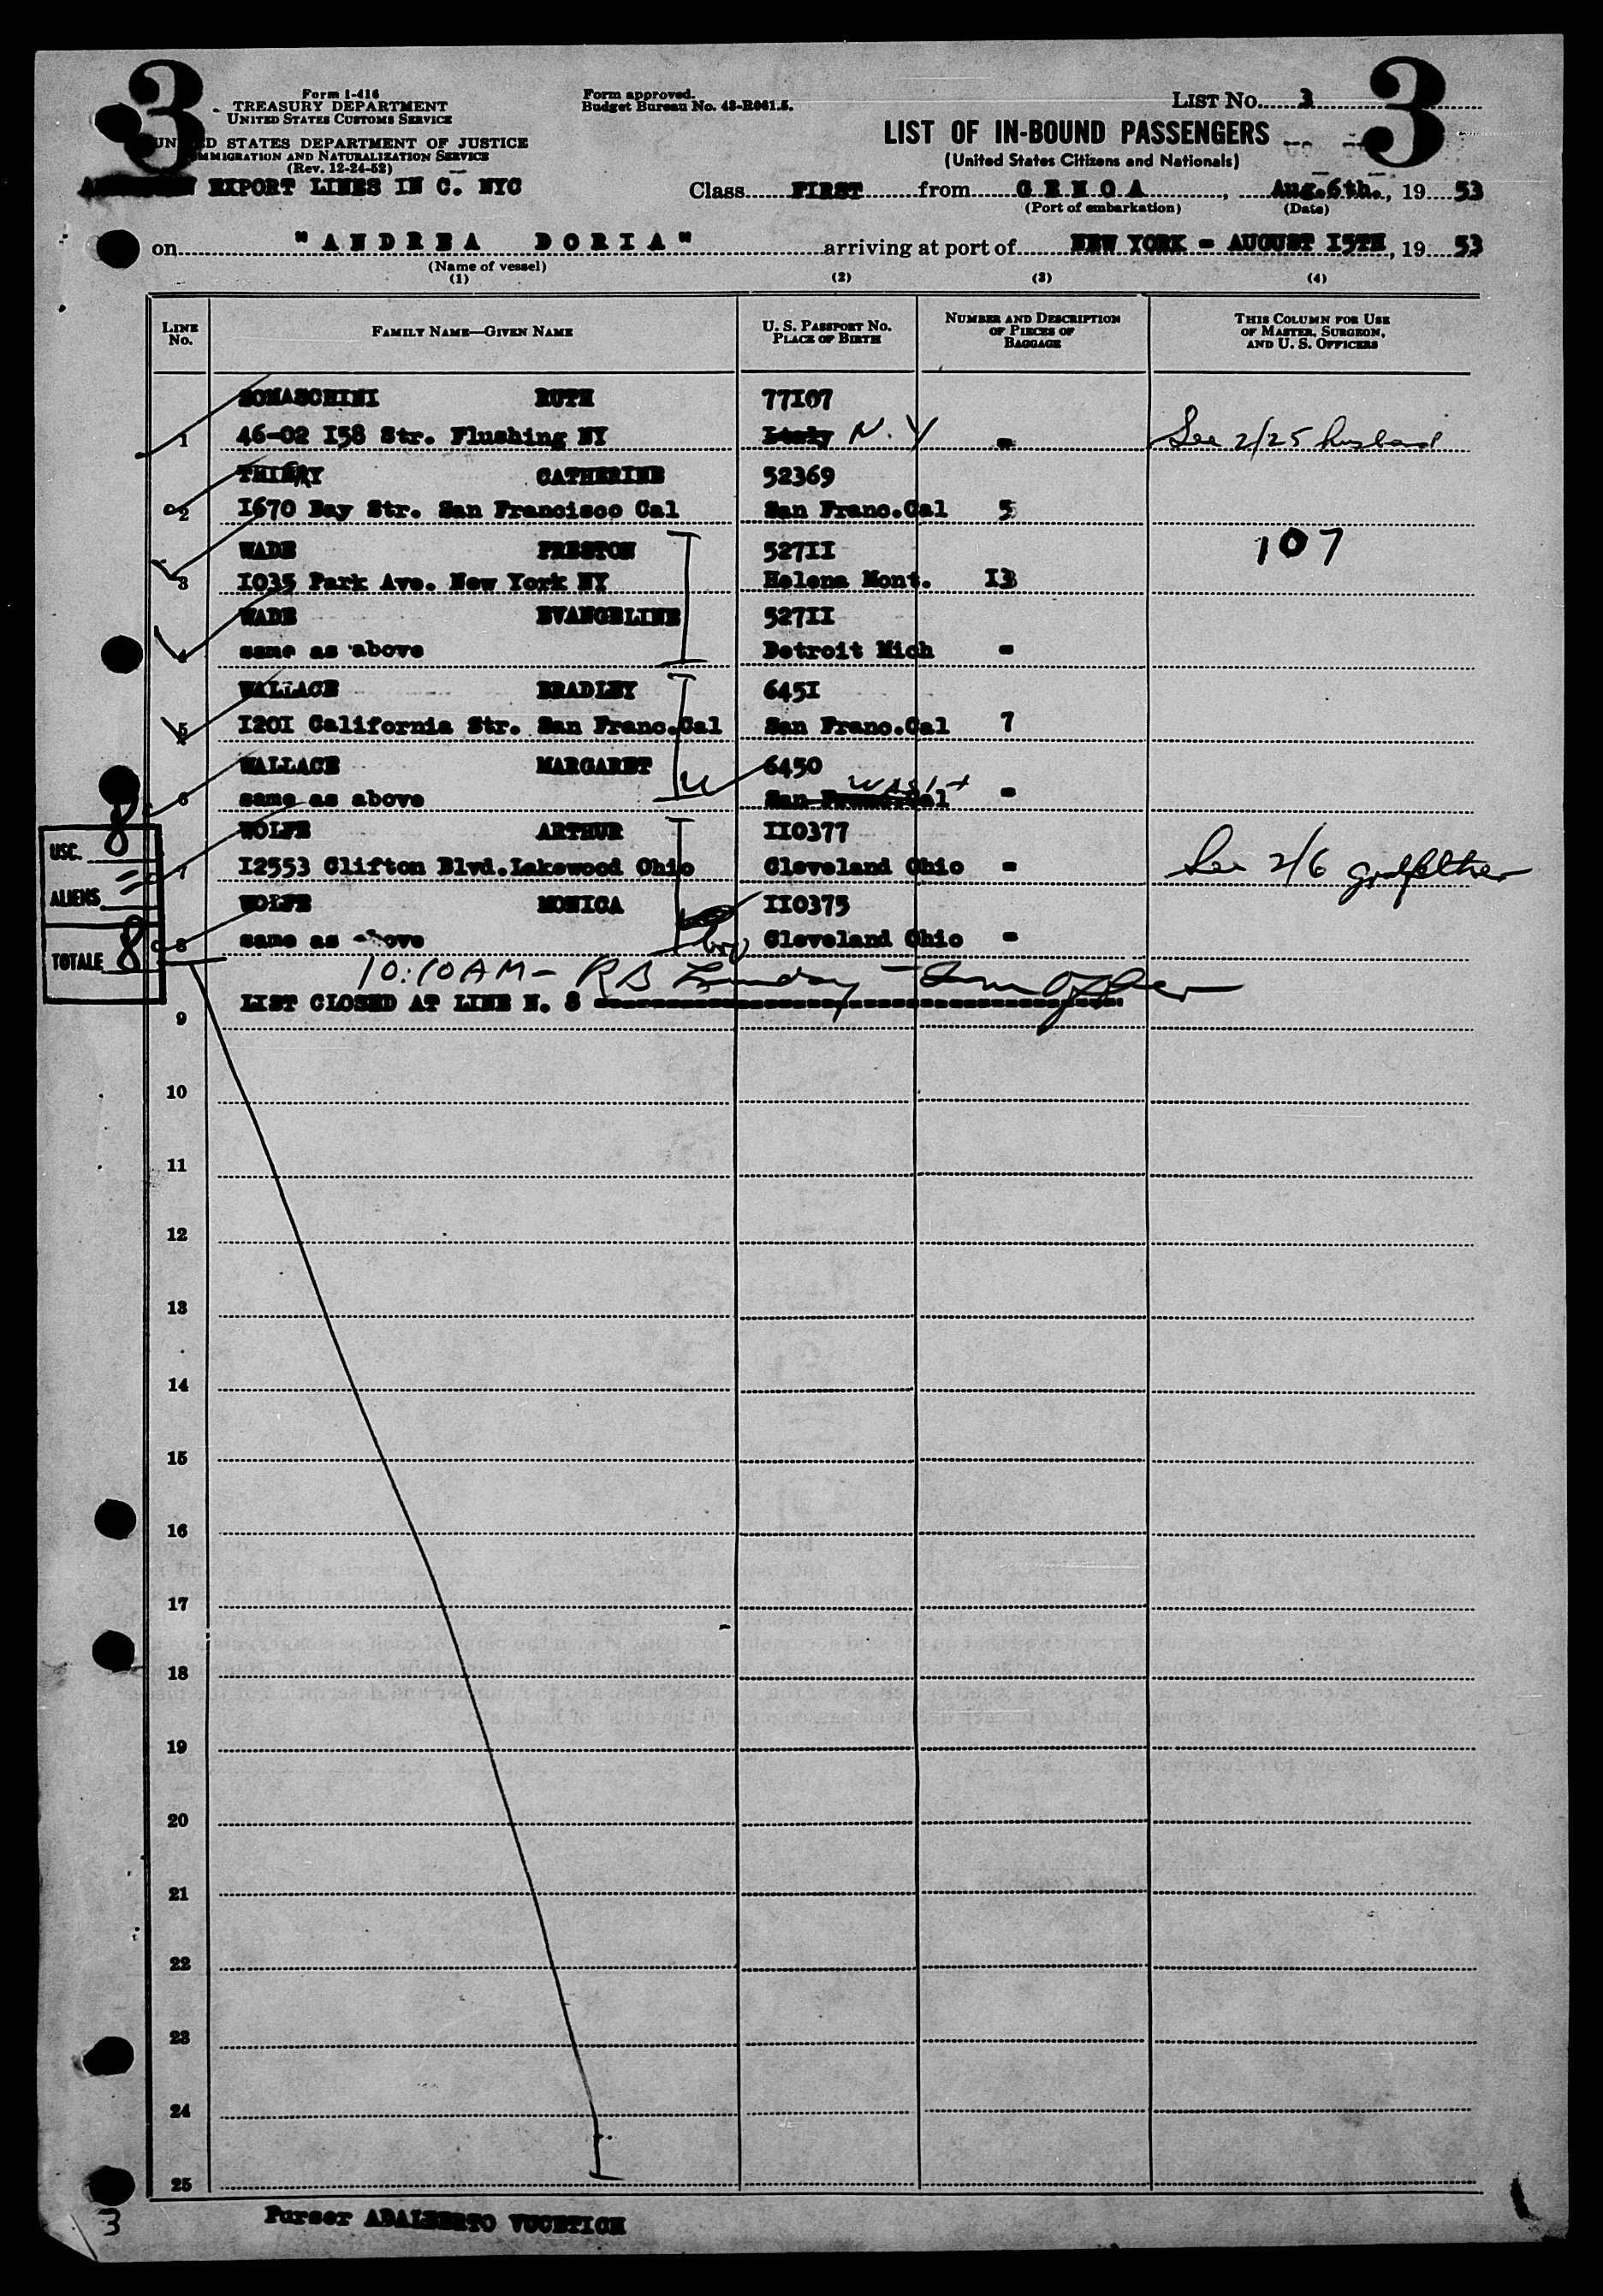 3
3
Form I-416
TREASURY DEPARTMENT
UNITED STATES CUSTOMS SERVICE
UNITED STATES DEPARTMENT OF JUSTICE
IMMIGRATION AND NATURALIZATION SERVICE
(Rev. 12-24-52)
EXPORT LINES IN C. NYC
Form approved.
Budget Bureau No. 43-R061.5.
LIST NO. 3
LIST OF IN-BOUND PASSENGERS
(United States Citizens and Nationals)
Class FIRST from GENOA, Aug.6th., 19 53
(Port of embarkation) (Date)
on "ANDREA DORIA" arriving at port of NEW YORK - AUGUST I5TH, 19 53
(Name of vessel)
(1) (2) (3) (4)
LINE NO.
FAMILY NAME—GIVEN NAME
U. S. PASSPORT NO. PLACE OF BIRTH
NUMBER AND DESCRIPTION OF PIECES OF BAGGAGE
THIS COLUMN FOR USE OF MASTER, SURGEON, AND U. S. OFFICERS
SOMASCHINI RUTH 77I07
1 46-02 I58 Str. Flushing NY Italy N.Y - See 2/25 husband
THIERY CATHERINE 52369
2 I670 Bay Str. San Francisco Cal San Franc.Cal 5
WADE PRESTON 527II 107
3 I035 Park Ave. New York NY Helena Mont. I3
WADE EVANGELINE 527II
4 same as above Detroit Mich -
WALLACE BRADLEY 645I
5 I20I California Str. San Franc.Cal San Franc.Cal 7
WALLACE MARGARET 6450
6 same as above San Franc.Cal Wash -
WOLFE ARTHUR II0377
7 I2553 Clifton Blvd.Lakewood Ohio Cleveland Ohio - See 2/6 godfather
WOLFE MONICA II0375
8 same as above Cleveland Ohio -
USC. 8
ALIENS =
TOTALE 8
10:10AM - RB
LIST CLOSED AT LINE N. 8
9
10
11
12
13
14
15
16
17
18
19
20
21
22
23
24
25
3
Purser ADALBERTO VUCETICH